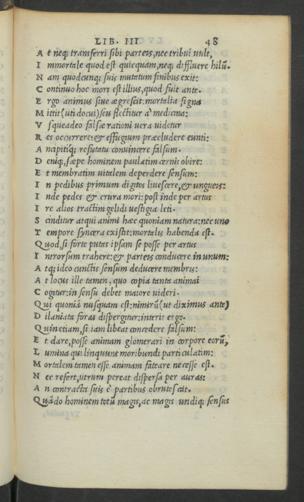 LIB. III 48
At neq; transferri sibi partes, nec tribui uult,
Immortale quod est quicquam, neq; diffluere hilũ.
Nam quodcunq; suis mutatum finibus exit:
Continuo hoc mors est illius, quod fuit ante.
Ergo animus siue ægrescit: mortalia signa
Mittit (uti docui) seu flectitur à medicina:
Vsqueadeo falsæ rationi uera uidetur
Res occurrere: & effugium præcludere eunti:
Ancipitiq; refutatu conuincere falsum.
Deniq, sæpe hominem paulatim cernis obire:
Et membratim uitalem deperdere sensum:
In pedibus primum digitos liuescere, & ungueis:
Inde pedes & crura mori: post inde per artus
Ire alios tractim gelidi uestigia leti.
Scinditur atqui animi hæc quoniam natura: nec uno
Tempore syncera existit: mortalis habenda est.
Quod si forte putes ipsam se posse per artus
Introrsum trahere: & parteis conducere in unum:
Atq; ideo cunctis sensum deducere membris:
At locus ille tamen, quo copia tanta animai
Cogitur: in sensu debet maiore uideri.
Qui quoniã nusquam est: nimirũ (ut diximus ante)
Dilaniata foras dispergitur: interit ergo.
Quin etiam, si iam libeat concedere falsum:
Et dare, posse animam glomerari in corpore eorũ,
Lumina qui linquunt moribundi particulatim:
Mortalem tamen esse animam fateare necesse est.
Nec refert, utrum pereat dispersa per auras:
An contracta suis è partibus obrutescat.
Quãdo hominem totũ magis, ac magis undiq; sensus